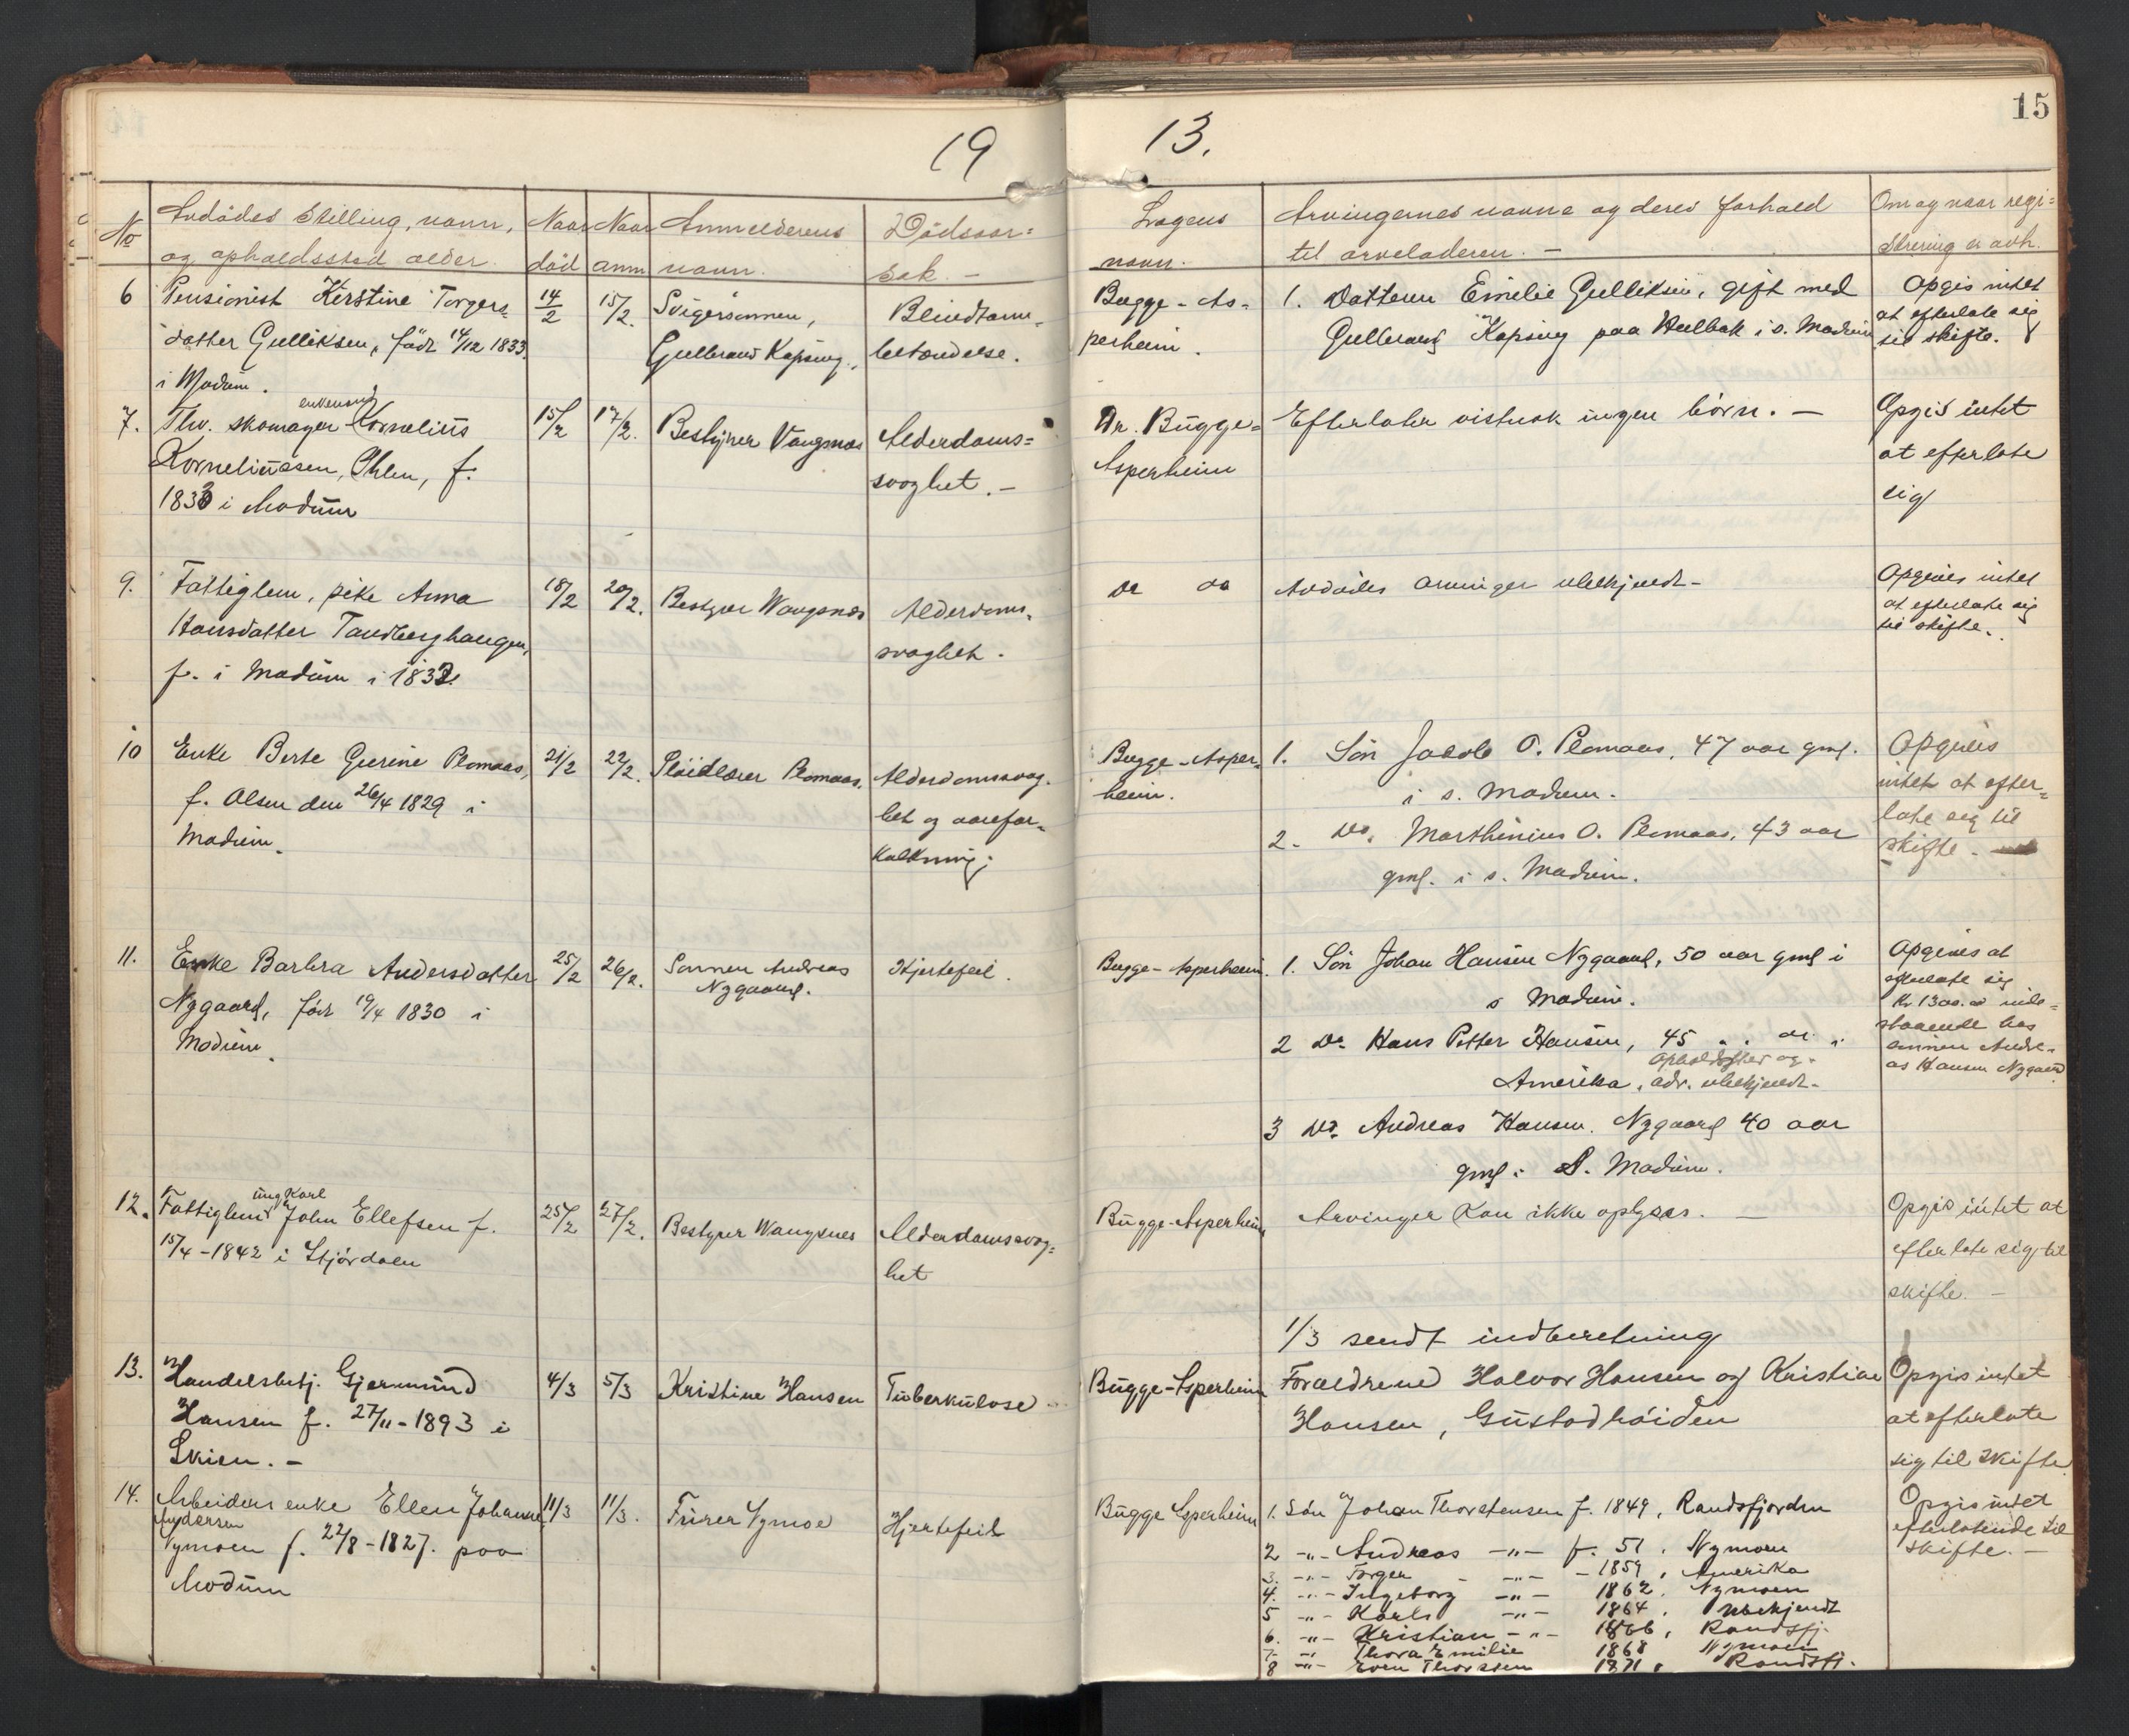 15
19 13.
No
Avdødes stilling, navn,
og opholdssted alder.
Naar
død
Naar
anm
Anmelderens
navn.
Dødsaar=
sak. -
Lægens
navn.
Arvingernes navne og deres forhold
til arveladeren. -
Om og naar regi=
strering er avh.
6
Pensionist Kirstine Torgers=
datter Gulliksen, født 14/12 1833
i Modum.
14/2
15/2.
Svigersønnen,
Gulbrand Kopsing.
Blindtarm=
betændelse.
Bugge-As=
perheim.
1. Datteren Emelie Gulliksen, gift med
Gulbrand Kopsing paa Hulbak i s. Modum
Opgis intet
at efterlate sig
til skifte.
7.
Thv. skomager enkemand Kornelius
Korneliussen, Øhlen, f.
1833 i Modum
15/2
17/2.
Bestyrer Vangsnæs
Alderdoms=
svaghet. -
Dr. Bugge=
Asperheim
Efterlater vistnok ingen börn. -
Opgis intet
at efterlate
sig
9.
Fattiglem, pike Anna
Hansdatter Tandberghaugen,
f. i Modum i 1832
18/2
20/2.
Bestyrer Wangsnæs
Alderdoms=
svaghet.
Do do
Avdødes arvinger ubekjendt -
Opgives intet
at efterlate sig
til skifte.
10
Enke Berte Gurine Plomaas,
f. Olsen den 26/4 1829 i
Modum.
21/2
22/2.
Plomaas.
Alderdomssvag=
het og aarefor=
kalkning.
Bugge-Asper=
heim.
1. Søn Jakob O. Plomaas, 47 aar gml.
i s. Modum.
2. Do. Marthinius O. Plomaas, 43 aar
gml. i s. Modum.
Opgives
intet at efter=
late sig til
skifte. -
11.
Enke Barbra Andersdatter
Nygaard, født 19/4 1830 i
Modum.
25/2
26/2.
Sønnen Andreas
Nygaard.
Hjertefeil.
Bugge-Asperheim.
1. Søn Johan Hansen Nygaard, 50 aar gml i
s Modum.
2 Do. Hans Petter Hansen, 45 " " do i
Amerika, opholdssted og
adr. ubekjendt -
3 Do. Andreas Hansen Nygaard 40 aar
gml i S. Modum.
Opgives at
efterlate sig
Kr. 1300.00 inde=
staaende hos
sønnen Andre=
as Hansen Nygaard
12.
Fattiglem ungkarl John Ellefsen f.
15/4-1842 i Stjørdalen
25/2
27/2.
Bestyrer Wangsnes
Alderdomssvag=
het
Bugge-Asperheim
Arvinger kan ikke oplyses. -
1/3 sendt indberetning
Opgis intet at
efterlate sig til
skifte. -
13.
Handelsbetj. Gjermund
Hansen f. 27/11-1893 i
Skien. -
4/3
5/3
Kristine Hansen
Tuberkulose
Bugge-Asperheim
Forældrene Halvor Hansen og Kristine
Hansen, Gustadhöiden
Opgis intet
at efterlate
sig til skifte.
14.
Arbeiders enke Ellen Johanne
Andersen
Nymoen f. 22/8-1827. paa
Modum
11/3
11/3.
Nymoe
Hjertefeil
Bugge Asperheim
1. Sön Johan Thorstensen f. 1849, Randsfjorden
2 -"- Andreas -"- f. 51, Nymoen
3. -"- Torger -"- -1859, Amerika
4. -"- Ingeborg -"- 1862, Nymoen
5 -"- Karls -"- 1864, Ubekjendt
6. -"- Kristian -"- 1866, Randsfj.
7- -"- Thora Emilie 1868 Nymoen
8 -"- Even Thorssen 1871, Randsfj.
Opgis intet
efterlatende til
skifte. -